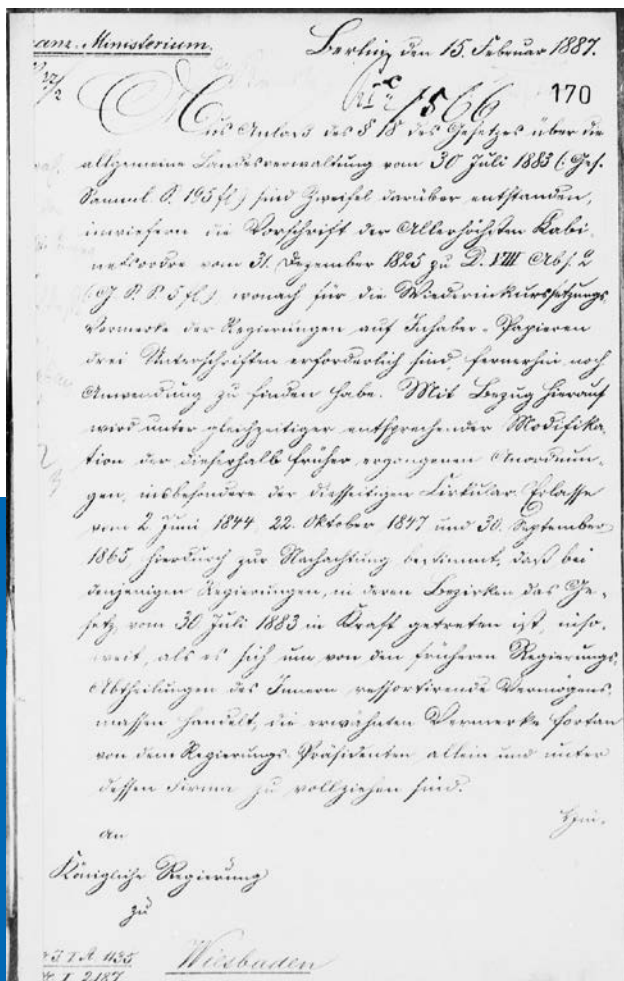 anz-Ministerium. Berlin, den 15. Februar 1887.
170
1566
Aus Anlaß des § 18 des Gesetzes über die
allgemeine Landesverwaltung vom 30 Juli 1883 (: Ges.
Samml. S. 195 fl:) sind Zweifel darüber entstanden,
inwiefern die Vorschrift der Allerhöchsten Kabi-
netsordre vom 31. Dezember 1825 zu D. VIII Abs. 2
(: G. S. S. 5 fl:), wonach für die Wiederinkurssetzungs-
Vermerke der Regierungen auf Inhaber-Papieren
drei Unterschriften erforderlich sind, fernerhin noch
Anwendung zu finden habe. Mit Bezug hierauf
wird unter gleichzeitiger entsprechender Modifika-
tion der dieserhalb früher ergangenen Anordnun-
gen, insbesondere der diesseitigen Cirkular-Erlasse
vom 2. Juni 1844, 22. Oktober 1847 und 30. September
1865, hierdurch zur Nachachtung bestimmt, daß bei
denjenigen Regierungen, in deren Bezirken das Ge-
setz vom 30 Juli 1883 in Kraft getreten ist, inso-
weit, als es sich um von den früheren Regierungs-
Abtheilungen des Innern ressortirende Vermögens-
massen handelt, die erwähnten Vermerke fortan
von dem Regierungs-Präsidenten allein und unter
dessen Firma zu vollziehen sind.
An
Königliche Regierung
zu
Wiesbaden
I 2187